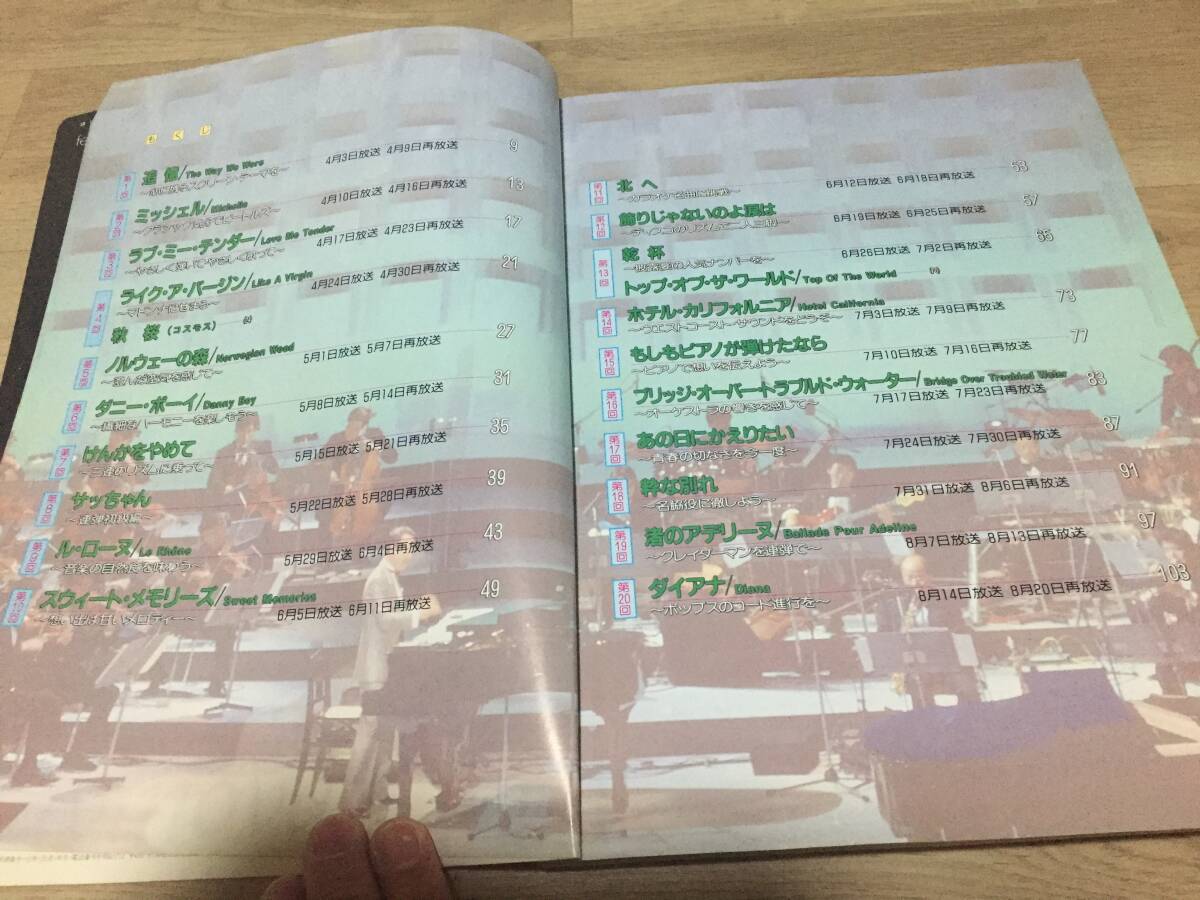 もくじ
第1回 追憶/The Way We Were 4月3日放送 4月9日再放送 9
～心に残るスクリーン・テーマを～
第2回 ミッシェル/Michelle 4月10日放送 4月16日再放送 13
～クラシックの技でビートルズ～
第3回 ラブ・ミー・テンダー/Love Me Tender 4月17日放送 4月23日再放送 17
～やさしく弾いてやさしく歌って～
第4回 ライク・ア・バージン/Like A Virgin 4月24日放送 4月30日再放送 21
～マドンナに
秋桜(コスモス)
第5回 ノルウェーの森/Norwegian Wood 5月1日放送 5月7日再放送 27
～澄んだ空気を感じて～
第6回 ダニー・ボーイ/Danny Boy 5月8日放送 5月14日再放送 31
～精密なハーモニーを楽しもう～
第7回 けんかをやめて 5月15日放送 5月21日再放送 35
～三連のリズムに乗って～
第8回 サッちゃん 5月22日放送 5月28日再放送 39
～連弾初級編～
第9回 ル・ローヌ/Le Rhône 5月29日放送 6月4日再放送 43
～音楽の自然さを味わう～
第10回 スウィート・メモリーズ/Sweet Memories 6月5日放送 6月11日再放送 49
～想い出は甘いメロディー～
第11回 北へ 6月12日放送 6月18日再放送 53
～カラオケ名曲に挑戦～
第12回 飾りじゃないのよ涙は 6月19日放送 6月25日再放送 57
～ディスコのリズムで二人三脚～
第13回 乾杯 6月26日放送 7月2日再放送 65
～披露宴の人気ナンバーを～
トップ・オブ・ザ・ワールド/Top Of The World
第14回 ホテル・カリフォルニア/Hotel California 73
～ウエストコースト・サウンドをどうぞ～ 7月3日放送 7月9日再放送
第15回 もしもピアノが弾けたなら 7月10日放送 7月16日再放送 77
～ピアノで想いを伝えよう～
第16回 ブリッジ・オーバー・トラブルド・ウォーター/Bridge Over Troubled Water 83
～オーケストラの響きを感じて～ 7月17日放送 7月23日再放送
第17回 あの日にかえりたい 7月24日放送 7月30日再放送 87
～青春の切なさを今一度～
第18回 粋な別れ 7月31日放送 8月6日再放送 91
～名脇役に徹しよう～
第19回 渚のアデリーヌ/Ballade Pour Adeline 8月7日放送 8月13日再放送 97
～クレイダーマンを連弾で～
第20回 ダイアナ/Diana 8月14日放送 8月20日再放送 103
～ポップスのコード進行を～